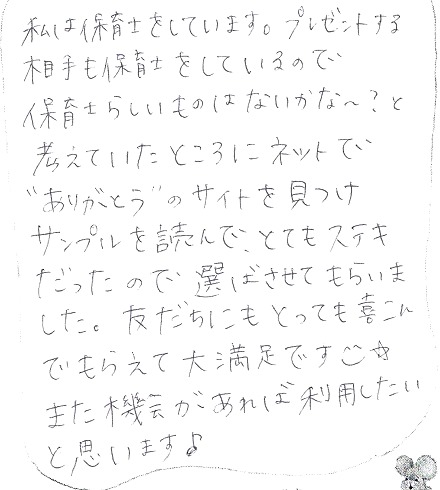 私は保育士をしています。プレゼントする
相手も保育士をしているので
保育士らしいものはないかな〜?と
考えていたところにネットで
"ありがとう"のサイトを見つけ
サンプルを読んで、とてもステキ
だったので選ばさせてもらいま
した。友だちにもとっても喜こん
でもらえて大満足です☺☆
また機会があれば利用したい
と思います♪